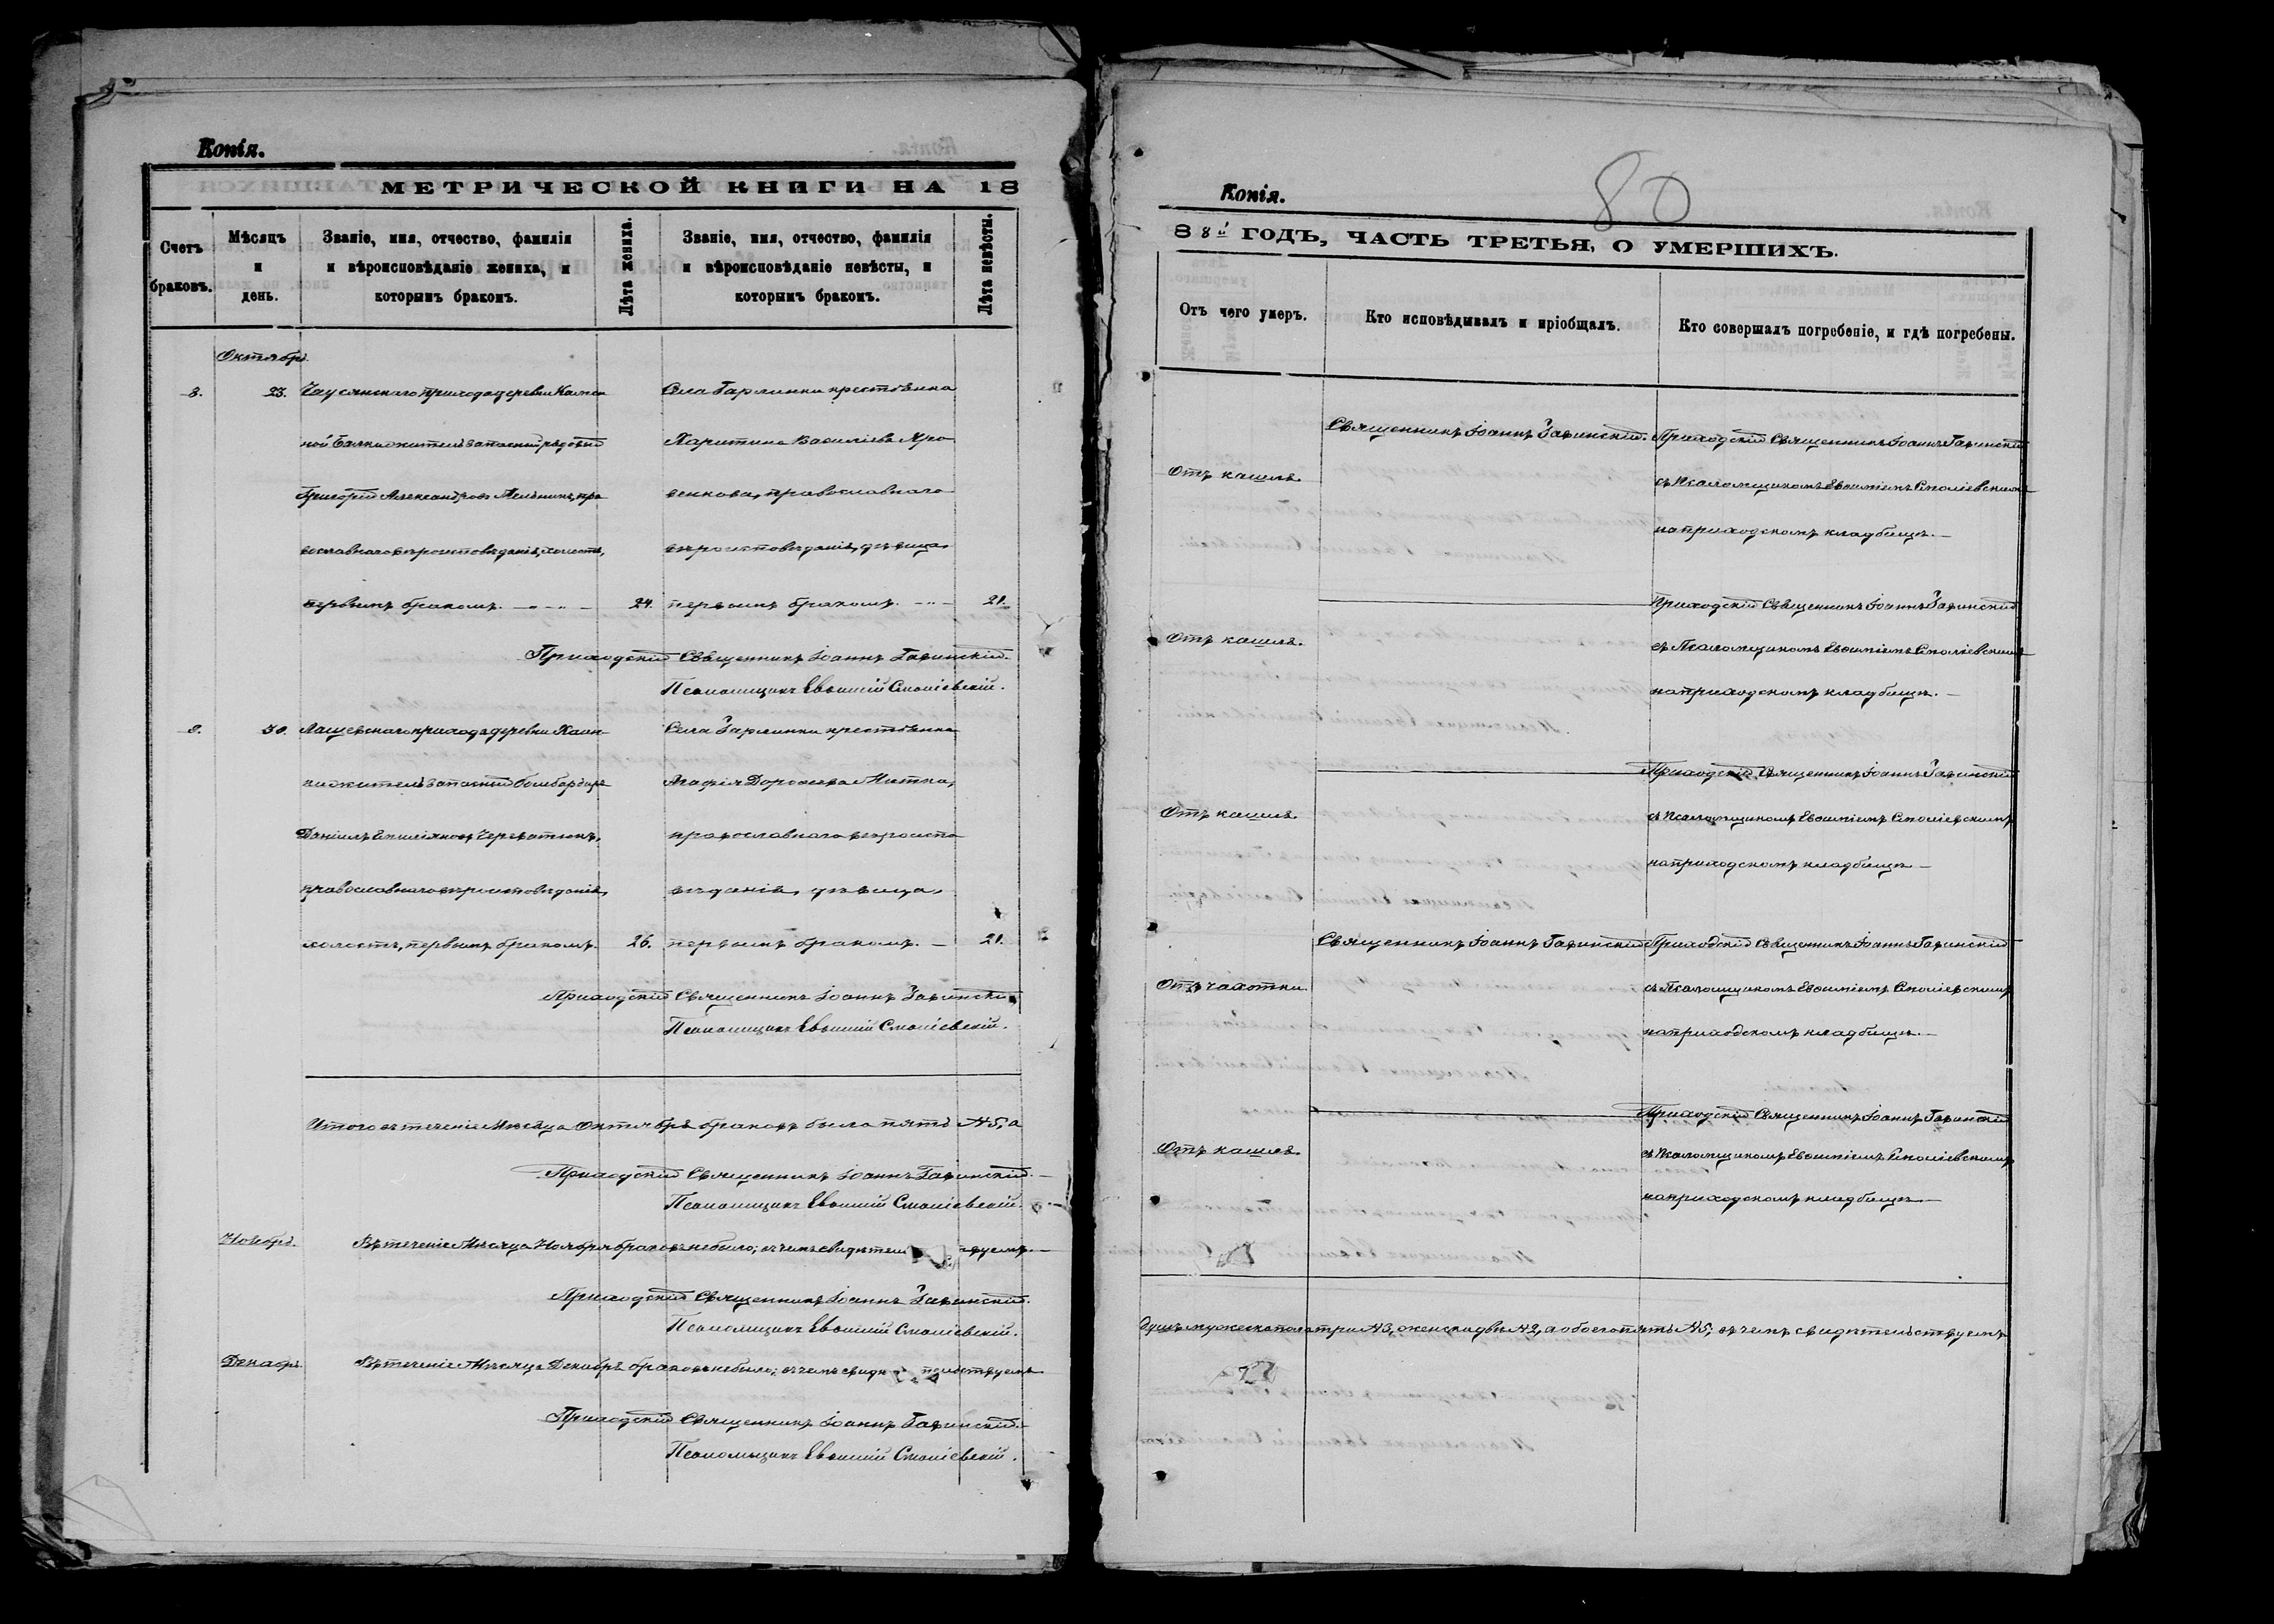 Копія.
МЕТРИЧЕСКОЙ КНИГИ НА 18
Счетъ браковъ.
Мѣсяцъ и день.
Званіе, имя, отчество, фамилія и вѣроисповѣданіе жениха, и которымъ бракомъ.
Лѣта жениха.
Званіе, имя, отчество, фамилія и вѣроисповѣданіе невѣсты, и которымъ бракомъ.
Лѣта невѣсты.
Октябрь.
8. 23. Чаусянскаго прихода деревни Камен
ной Балки житель запасный рядовый
Григорій Александровъ Мельникъ, пра
вославнаго вѣроисповѣданія, холостъ,
первымъ бракомъ. 24.
Села Гарлинки крестьянка
Харитина Василіева
венкова, православнаго
вѣроисповѣданія, дѣвица,
первымъ бракомъ. 21.
Приходскій Священникъ Іоаннъ
Псаломщикъ Евѳимій Смоліевскій.
30. прихода деревни
житель запасный бомбардиръ
Даніилъ Череватюкъ,
православнаго вѣроисповѣданія,
холостъ, первымъ бракомъ. 26.
Села Гарлинки крестьянка
Агафія Дороѳеева Митка,
православнаго вѣроиспо
вѣданія, дѣвица,
первымъ бракомъ. 21.
Приходскій Священникъ Іоаннъ
Псаломщикъ Евѳимій Смоліевскій.
Итого въ теченіе Мѣсяца Октября браковъ было пять №5, а
Приходскій Священникъ Іоаннъ
Псаломщикъ Евѳимій Смоліевскій.
Ноябрь. Въ теченіе Мѣсяца Ноября браковъ не было; въ чемъ свидѣтель ствуемъ.
Приходскій Священникъ Іоаннъ
Псаломщикъ Евѳимій Смоліевскій.
Декабрь. Въ теченіе Мѣсяца Декабря браковъ не было; въ чемъ свидѣ тельствуемъ
Приходскій Священникъ Іоаннъ
Псаломщикъ Евѳимій Смоліевскій.
80
Копія.
88й ГОДЪ, ЧАСТЬ ТРЕТЬЯ, О УМЕРШИХЪ.
Отъ чего умеръ.
Кто исповѣдывалъ и пріобщалъ.
Кто совершалъ погребеніе, и гдѣ погребены.
Отъ кашля.
Священникъ Іоаннъ
Приходскій Священникъ Іоаннъ
съ Псаломщикомъ Евѳиміемъ Смоліевскимъ
на приходскомъ кладбищѣ.
Отъ кашля.
Приходскій Священникъ Іоаннъ
съ Псаломщикомъ Евѳиміемъ Смоліевскимъ
на приходскомъ кладбищѣ.
Отъ кашля.
Приходскій Священникъ Іоаннъ
съ Псаломщикомъ Евѳиміемъ Смоліевскимъ
на приходскомъ кладбищѣ
Отъ чахотки.
Священникъ Іоаннъ
Приходскій Священникъ Іоаннъ
съ Псаломщикомъ Евѳиміемъ Смоліевскимъ
на приходскомъ кладбищѣ.
Отъ кашля.
Приходскій Священникъ Іоаннъ
съ Псаломщикомъ Евѳиміемъ Смоліевскимъ
на приходскомъ кладбищѣ
душъ мужеска пола три №3, женска двѣ №2, а обоего пять №5; въ чемъ свидѣтельствуемъ